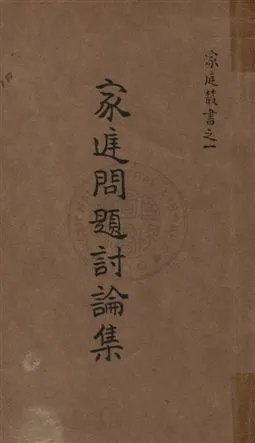 家庭叢書之一
家庭問題討論集